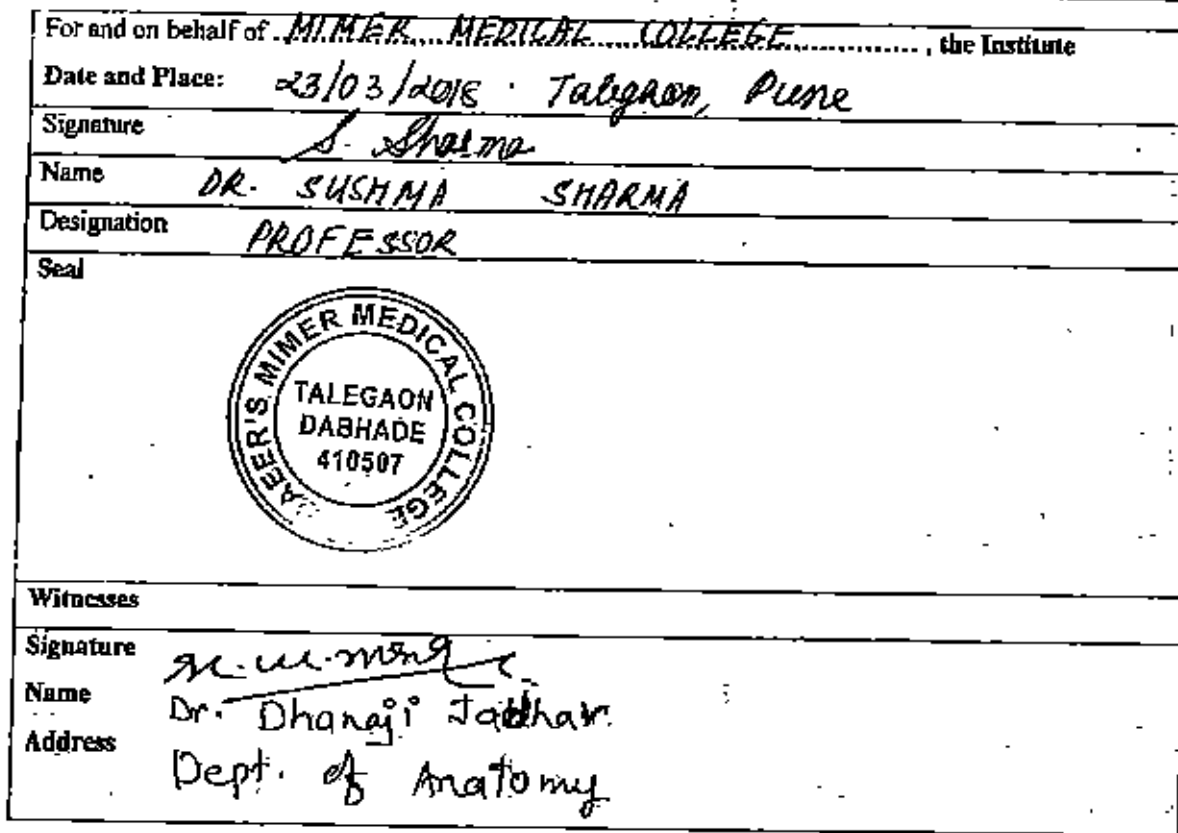 For and on behalf of MIMER MEDICAL COLLEGE, the Institute
Date and Place: 23/03/2018 . Talegaon, Pune
Signature S. Sharma
Name DR. SUSHMA SHARMA
Designation PROFESSOR
Seal
MAEER'S MIMER MEDICAL COLLEGE
TALEGAON
DABHADE
410507
Witnesses
Signature
Name Dr. Dhanaji Jadhav
Address Dept. of Anatomy